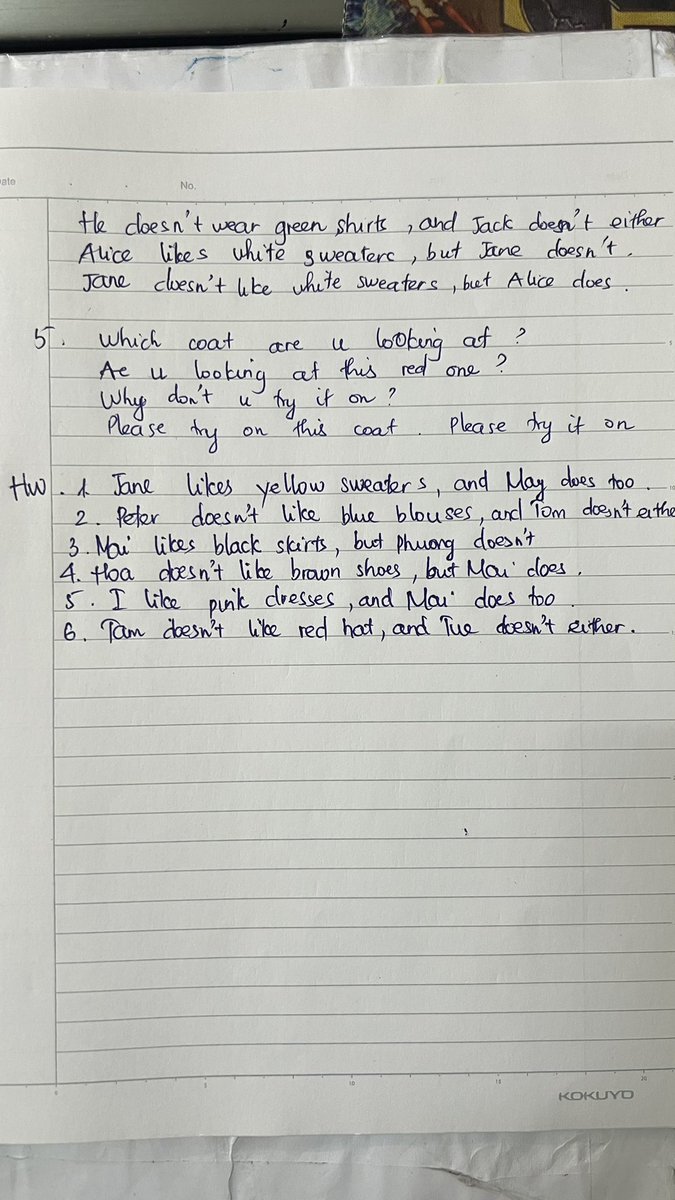 ate
No.
He doesn't wear green shirts, and Jack doesn't either
Alice likes white sweaters, but Jane doesn't.
Jane doesn't like white sweaters, but Alice does.
5. Which coat are u looking at?
Ae u looking at this red one?
Why don't u try it on?
Please try on this coat. Please try it on
Hw. 1 Jane likes yellow sweaters, and May does too.
2. Peter doesn't like blue blouses, and Tom doesn't eithe
3. Mai likes black skirts, but Phuong doesn't
4. Hoa doesn't like brown shoes, but Mai does.
5. I like pink dresses, and Mai does too.
6. Tam doesn't like red hat, and Tue doesn't either.
0 5 10 15 20
KOKUYO